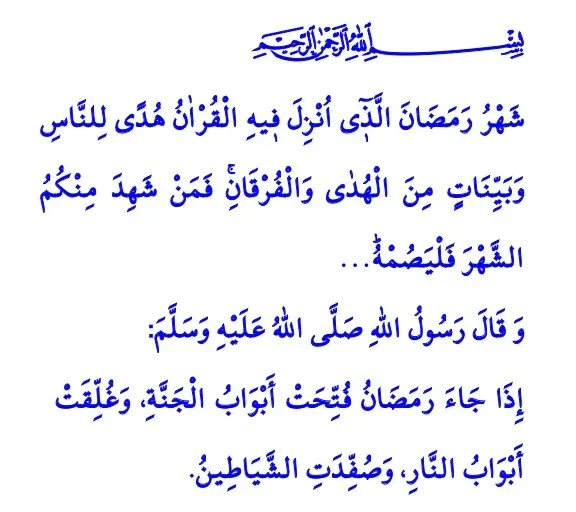 بِسْمِ اللهِ الرَّحْمٰنِ الرَّحِيمِ
شَهْرُ رَمَضَانَ الَّذ۪ٓى اُنْزِلَ ف۪يهِ الْقُرْاٰنُ هُدًى لِلنَّاسِ
وَبَيِّنَاتٍ مِنَ الْهُدٰى وَالْفُرْقَانِۚ فَمَنْ شَهِدَ مِنْكُمُ
الشَّهْرَ فَلْيَصُمْهُۜ...
وَ قَالَ رَسُولُ اللهِ صَلَّى اللهُ عَلَيْهِ وَسَلَّمَ:
إِذَا جَاءَ رَمَضَانُ فُتِّحَتْ أَبْوَابُ الْجَنَّةِ، وَغُلِّقَتْ
أَبْوَابُ النَّارِ، وَصُفِّدَتِ الشَّيَاطِينُ.